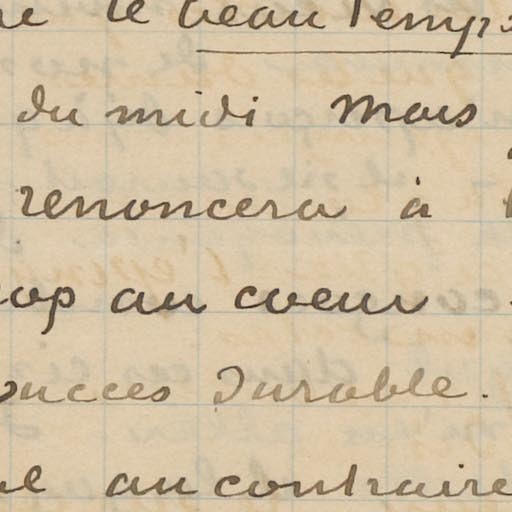 le beau Temps
du midi Mais
renoncera à
au coeur
succes durable.
au contraire